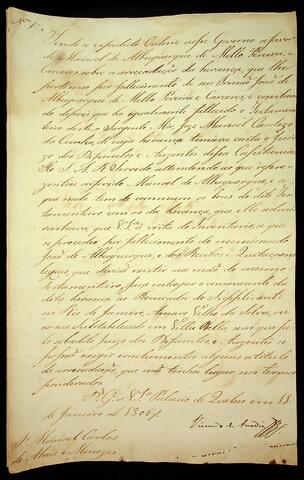 Nº 1.
Tendo-se expedido Ordem a esse Governo a favor
de Manoel de Albuquerque de Mello Pereira, e
Caceres, sobre a arrecadação da herança, que lhe
pertence por fallecimento de seu Irmão João de
Albuquerque de Mello Pereira e Caceres, e constando
depois que he igualmente fallecido o Testamen
teiro deste o Sargento Mor Joze Manoel Cardozo
da Cunha, de cuja herança tomára conta o Juizo
dos Defuntos e Auzentes dessa Capitania:
He S. A. R. Servido attendendo ao que repre-
zenta o referido Manoel de Albuquerque, e a
que nada tem de commum os bens do dito Tes-
tamenteiro com os da herança, que elle admi-
nistrava, que V. Sa. á vista do Inventario, a que
se procedeo por fallecimento do mencionado
João de Albuquerque, e dos Recibos e Quitaçoens
legaes, que devião existir na mão do mesmo
Testamenteiro, faça entregar o remanecente da
dita herança ao Procurador do Supplicante
no Rio de Janeiro, Amaro Velho da Silva, ou
ao seu Substabelecido em Villa Bella, sem que pe-
lo sobredito Juizo dos Defuntos e Auzentes se
possão exigir emolumentos alguns a titulo
de arrecadação, que não tenha lugar, nos termos
ponderados.
Ds. Ge. a V. Sa. Palacio de Queluz em 11
de Janeiro de 1806.
Visconde de Anadia
Sr. Manoel Carlos
de Abreu e Menezes